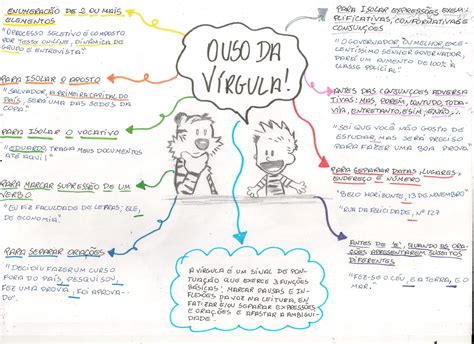 O USO DA
VÍRGULA!
ENUMERAÇÃO DE 2 OU MAIS
ELEMENTOS
"O PROCESSO SELETIVO É COMPOSTO
POR TESTE ONLINE, DINÂMICA DE
GRUPO E ENTREVISTA."
PARA ISOLAR O APOSTO
"SALVADOR, A PRIMEIRA CAPITAL DO
PAÍS, SERÁ UMA DAS SEDES DA
COPA."
PARA ISOLAR O VOCATIVO
"EDUARDO, TRAGA MEUS DOCUMENTOS
ATÉ AQUI!"
PARA MARCAR SUPRESSÃO DE UM
VERBO
"EU FIZ FACULDADE DE LETRAS; ELE,
DE ECONOMIA."
PARA SEPARAR ORAÇÕES
"DECIDIU FAZER UM CURSO
FORA DO PAÍS, PESQUISOU,
FEZ UMA PROVA, FOI APROVA-
DO."
PARA ISOLAR EXPRESSÕES EXEM-
PLIFICATIVAS, CONFORMATIVAS E
CONJUNÇÕES
"O GOVERNADOR, OU MELHOR, EXCE-
LENTÍSSIMO SENHOR GOVERNADOR,
DARÁ UM AUMENTO DE 100% À
CLASSE POLICIAL."
ANTES DAS CONJUNÇÕES ADVERSA-
TIVAS: MAS, PORÉM, CONTUDO, TODA-
VIA, ENTRETANTO,
"SEI QUE VOCÊ NÃO GOSTA DE
ESTUDAR, MAS SERÁ PRECISO
PARA FAZER UMA BOA PROVA."
PARA SEPARAR DATAS, LUGARES,
ENDEREÇO E NÚMERO
"BELO HORIZONTE, 13 DE NOVEMBRO"
"RUA DA FELICIDADE, Nº 127
ANTES DE "E", QUANDO AS ORA-
ÇÕES APRESENTAREM SUJEITOS
DIFERENTES
"FEZ-SE O CÉU, E A TERRA, E O
MAR."
A VÍRGULA É UM SINAL DE PON-
TUAÇÃO QUE EXERCE 3 FUNÇÕES
BÁSICAS: MARCAR PAUSAS E IN-
FLEXÕES DA VOZ NA LEITURA, EN-
FATIZAR E/OU SEPARAR EXPRESSÕES
E ORAÇÕES E AFASTAR A AMBIGUI-
DADE.